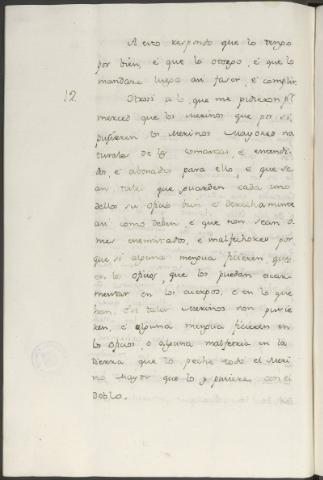 A esto respondo que lo tengo
por bien, è que lo otorgo, è que lo
mandare luego asi facer, è complir.
12. Otrosi a lo que me pidieron p.r
merced que los Merinos que por si,
pusieren los Merinos Mayores na
turales de las comarcas, è entendi
dos, è abonados para ello, è que se
an tales que guarden cada uno
dellos su oficio bien è derechamente
asi como deben, è que non sean o
mes enemistados, è malfechores por
que si alguna mengua ficieren
en los oficios, que los puedan escar
mentar en los cuerpos, è en lo que
han, è si tales Merinos non pusie
ren, è alguna mengua ficieren en
los oficios, o alguna malfetria en la
tierra que lo peche todo el Meri
no Mayor que lo y pusiere con el
doblo.